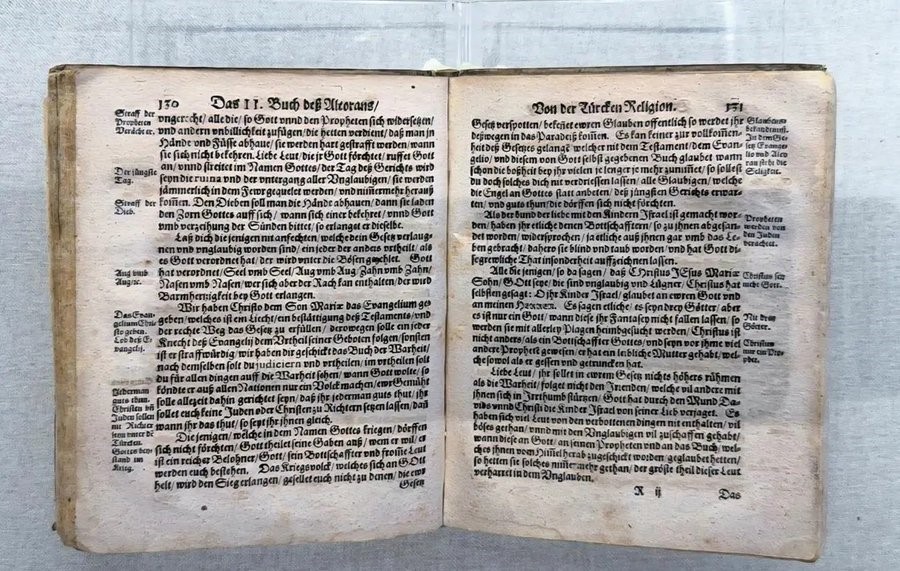 130
Das II. Buch deß Alcorans/
Straff der
Propheten
Verächter.
Der jüngste
Tag.
Straff der
Dieb.
Aug vmb
Aug/ꝛc.
Das Evan-
gelium Chri-
sto geben.
Lob deß E-
vangelij.
Jederman
guts thun.
Christen vñ
Juden sollen
nit Richter
seyn vnter dẽ
Türcken.
Gottes bey-
stand im
Krieg.
vngerecht/ alle die/ so Gott vnnd den Propheten sich widersetzen/
vnd andern vnbillichkeit zufügen/ die hetten verdient/ daß man jn
Hände vnd Füsse abhaue/ sie werden hart gestrafft werden/ wann
sie sich nicht bekehren. Liebe Leut/ die jr Gott förchtet/ ruffet Gott
an/ vnnd streitet im Namen Gottes/ der Tag deß Gerichts wird
seyn die ruina vnd der vntergang aller Vnglaubigen/ sie werden
jämmerlich in dem Fewr gequelet werden/ vnd nim̃ermehr herauß
kom̃en. Den Dieben soll man die Hände abhauen/ dann sie laden
den Zorn Gottes auff sich/ wann sich einer bekehret/ vnnd Gott
vmb verzeihung der Sünden bittet/ so erlanget er dieselbe.
Laß dich die jenigen nit anfechten/ welche dein Gesetz verlaug-
nen vnd vnglaubig worden sind/ ein jeder der anders vrtheilt/ als
es Gott verordnet hat/ der wird vnter die Bösen gezehlet. Gott
hat verordnet/ Seel vmb Seel/ Aug vmb Aug/ Zahn vmb Zahn/
Nasen vmb Nasen/ wer sich aber der Rach kan enthalten/ der wird
Barmhertzigkeit bey Gott erlangen.
Wir haben Christo dem Son Mariæ das Evangelium ge-
geben/ welches ist ein Liecht/ ein bestättigung deß Testaments/ vnd
der rechte Weg das Gesetz zu erfüllen/ derowegen solle ein jeder
Knecht deß Evangelij dem Vrtheil seiner Geboten folgen/ sonsten
ist er straffwürdig/ wir haben dir geschickt das Buch der Warheit/
nach demselben solt du judiciern vnd vrtheilen/ im vrtheilen solt
du für allen dingen auff die Warheit sehen/ wann Gott wolte/ so
köndte er auß allen Nationen nur ein Volck machen/ ewr Gemüht
solle allezeit dahin gerichtet seyn/ daß jhr jederman guts thut/ jhr
sollet euch keine Juden oder Christen zu Richtern setzen lassen/ daß
wann jhr das thut/ so seyt jhr jhnen gleich.
Die jenigen/ welche in dem Namen Gottes kriegen/ dörffen
sich nicht förchten/ Gott theilet seine Gaben auß/ wem er wil/ er
ist ein reicher Belohner/ Gott/ sein Bottschaffter vnd from̃e Leut
werden euch beystehen. Das Kriegsvolck/ welches sich an GOtt
helt/ wird den Sieg erlangen/ gesellet euch nicht zu denen/ die ewr
Gesetz
Von der Türcken Religion.
131
Gesetz verspotten/ bekeñet ewren Glauben offentlich/ so werdet jhr
deßwegen in das Paradeiß kom̃en. Es kan keiner zur vollkom̃en-
heit deß Gesetzes gelangẽ/ welcher nit dem Testament/ dem Evan-
gelio/ vnd diesem von Gott selbst gegebenen Buch glaubet/ wann
schon die boßheit bey jhr vielen je lenger je mehr zunim̃et/ so sollest
du doch solches dich nit verdriessen lassen/ alle Glaubigen/ welche
die Engel an Gottes statt anbeten/ deß jüngsten Gerichts erwar-
ten/ vnd guts thun/ die dörffen sich nicht förchten.
Als der bund der liebe mit den Kindern Israel ist gemacht wor-
den/ haben jhr etliche denen Bottschafftern/ so zu jhnen abgesan-
det worden/ widersprochen/ ja etliche auß jhnen gar vmb das Le-
ben gebracht/ dahero sie blind vnd taub worden/ vnd hat Gott di-
se grewliche That insonderheit auffzeichnen lassen.
Alle die jenigen/ so da sagen/ daß Christus JEsus Mariæ
Sohn/ GOtt seye/ die sind vnglaubig vnd Lügner/ Christus hat
selbsten gesagt: O jhr Kinder Israel/ glaubet an ewren Gott vnd
an meinen HErren. Es sagen etliche/ es seyn drey Götter/ aber
es ist nur ein Gott/ wann sie jhr Fantasey nicht fallen lassen/ so
werden sie mit allerley Plagen heimbgesucht werden/ Christus ist
nicht anders/ als ein Bottschaffter Gottes/ vnd seyn vor jhme viel
andere Propheten gewesen/ er hat ein leibliche Mutter gehabt/ wel-
che so wol als er gessen vnd getruncken hat.
Liebe Leut/ jhr sollet in ewrem Gesetz nichts höhers rühmen
als die Warheit/ folget nicht den Irrenden/ welche vil andere mit
jhnen sich in Irrthumb stürtzen/ Gott hat durch den Mund Da-
vids vnnd Christi die Kinder Israel von seiner Lieb verjaget. Es
haben sich viel Leut von den verbottenen dingen nit enthalten/ vil
böses gethan/ vnnd mit den Vnglaubigen vil zuschaffen gehabt/
wann diese an Gott/ an jhnen Propheten vnd an das Buch/ wel-
ches jhnen vom Him̃el herab zugeschickt worden/ geglaubet hetten/
so hetten sie solches nim̃ermehr gethan/ der gröste theil dieser Leut
verharret in dem Vnglauben.
R ij
Das
Glaubens-
bekandtnuß.
In dem Ge-
setz Evange-
lio vnd Alco-
ran steht die
Seligkeit.
Propheten
werden von
den Juden
verachtet.
Christus sey
nicht Gott.
Nit drey
Götter.
Christus
nur ein Pro-
phet.